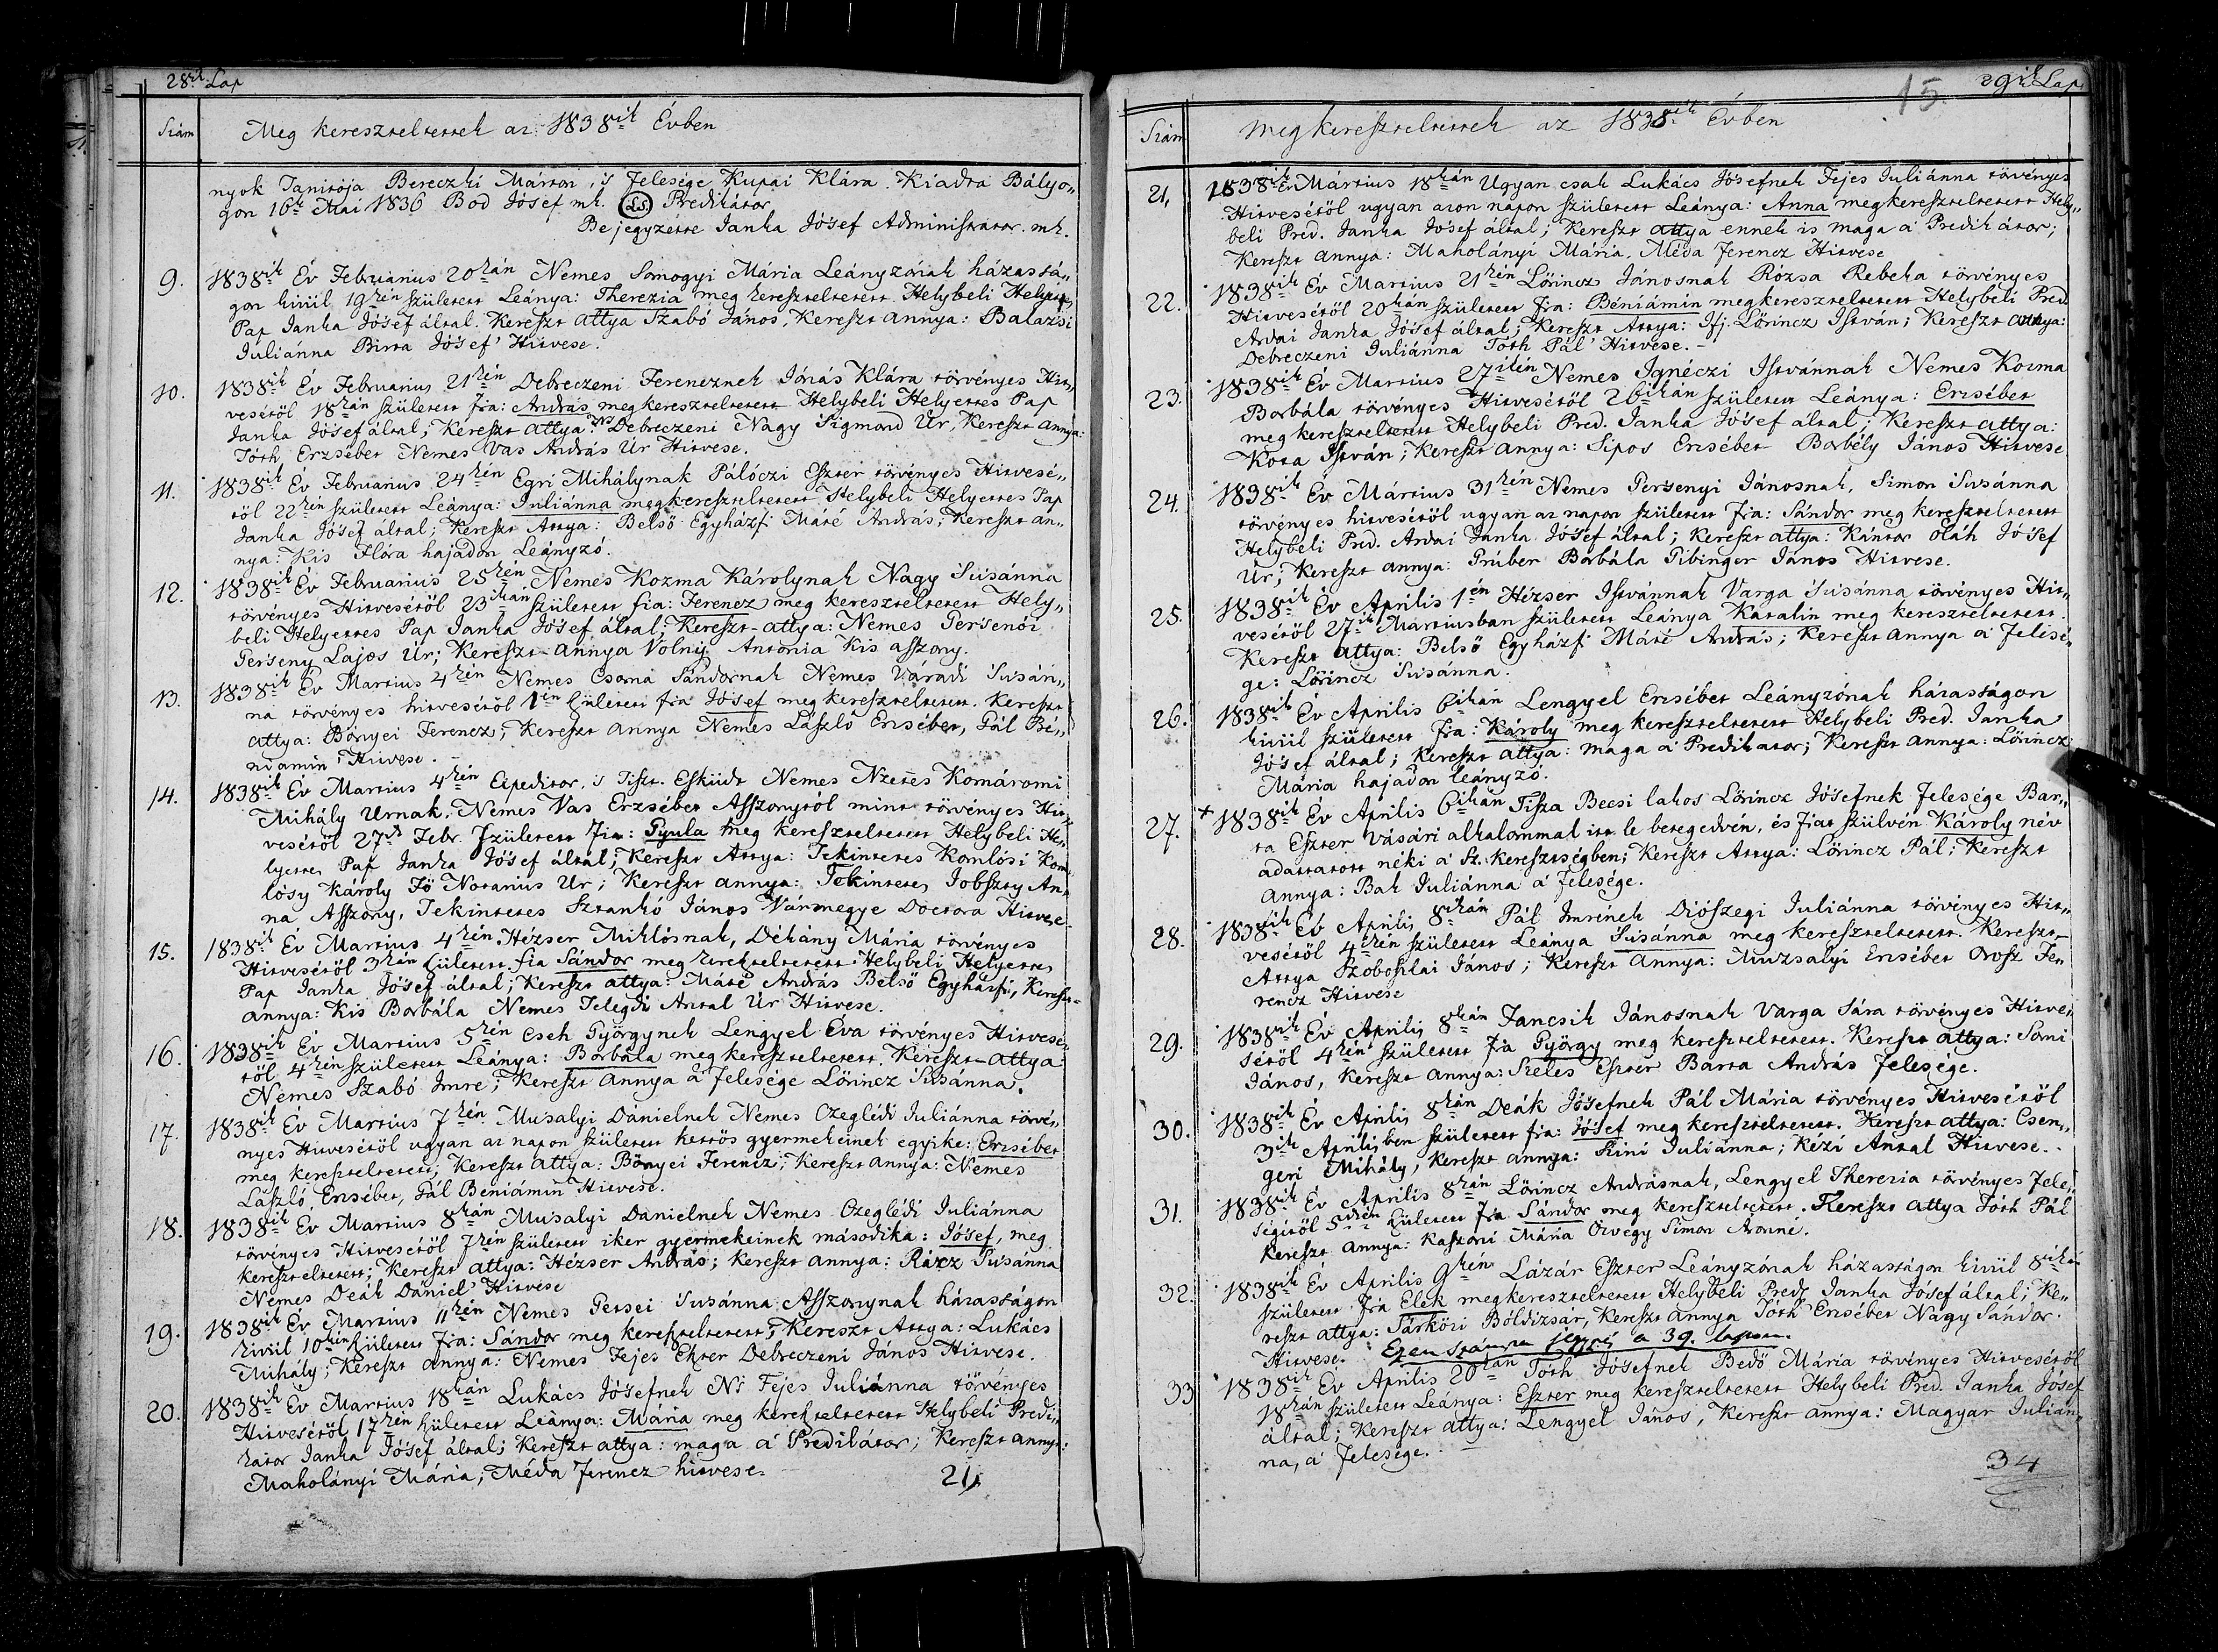 28ik Lap
Szám
Meg kereszteltettek az 1838ik Évben
nyok Tanitója Bereczki Márton, 's felesége Kupai Klára. Kiadta Bályo„
gon 16ik Mai 1836 Bod Jósef mk. (L.S.) Predikátor
Bejegyzétte Janka Jósef Administrator. mk.
9. 1838ik Év Februarius 20kán Nemes Somogyi Mária Leányzónak házassá„
gon kivül 19kén született Leánya: Therezia meg kereszteltetett Helybeli Helyettes
Pap Janka Jósef által. Kereszt attya Szabó János, Kereszt annya: Balázsi
Juliánna Birta Jósef' Hitvese.
10. 1838ik Év Februarius 21kén Debreczeni Ferencznek Jónás Klára törvényes Hit„
vesétöl 18kán született fia: András megkereszteltetett Helybeli Helyettes Pap
Janka Jósef által; Kereszt attya: Ns Debreczeni Nagy Sigmond Úr, Kereszt annya:
Tóth Erzsébet Nemes Vas András Úr Hitvese.
11. 1838ik Év Februarius 24kén Egri Mihálynak Pálóczi Eszter törvényes Hitvesé„
töl 22kén született Leánya: Juliánna megkereszteltetett Helybeli Helyettes Pap
Janka Jósef által; Kereszt Attya: Belsö Egyházfi Máté András; Kereszt an„
nya: Kis Flóra hajadon Leányzó.
12. 1838ik Év Februarius 25kén Nemes Kozma Károlynak Nagy Susánna
törvényes Hitvesétöl 23ikán született fia: Ferencz meg kereszteltetett Hely„
beli Helyettes Pap Janka Jósef által; Kereszt-attya: Nemes Persenói
Perseny Lajos Úr; Kereszt-annya Volny Antónia Kis asszony.
13. 1838ik Év Martius 4kén Nemes Csoma Sándornak Nemes Váradi Susán„
na törvényes hitvesétöl 1én született fia Jósef meg kereszteltetett. Kereszt
attya: Bónyei Ferencz; Kereszt annya Nemes László Ersébet, Pál Bé„
niámin Hitvese.
14. 1838ik Év Martius 4kén Expeditor, 's Tiszt. Esküdt Nemes Nzetes Komáromi
Mihály Urnak, Nemes Vas Erzsébet Asszonytól mint törvényes Hit„
vesétöl 27ik Febr. született fia: Gyula meg kereszteltetett Helybeli He„
lyettes Pap Janka Jósef által; Kereszt Attya: Tekintetes Komlósi Kom„
lósy Károly Fö Notarius Úr; Kereszt annya: Tekintetes Jobszty An„
na Asszony, Tekintetes Sztankó János Vármegye Doctora Hitvese.
15. 1838ik Év Martius 4kén Hézser Miklósnak, Dékány Mária törvényes
Hitvesétöl 3kán született fia Sándor meg kereszteltetett Helybeli Helyettes
Pap Janka Jósef által; Kereszt attya: Máté András Belsö Egyházfi, Kereszt-
annya: Kis Borbála Nemes Telegdi Antal Úr Hitvese.
16. 1838ik Év Martius 5kén Cseh Györgynek Lengyel Éva törvényes Hitvesé„
töl 4kén született Leánya: Borbála meg kereszteltetett. Kereszt-attya
Nemes Szabó Imre; Kereszt annya a' felesége Lörincz Susánna.
17. 1838ik Év Martius 7kén Musalyi Dánielnek Nemes Czeglédi Juliánna törvé„
nyes Hitvesétöl ugyan az napon született kettös gyermekeinek egyike: Ersébet
meg kereszteltetett; Kereszt attya: Bónyei Ferencz; Kereszt annya: Nemes
László Ersébet, Pál Beniámin Hitvese.
18. 1838ik Év Martius 8kán Musalyi Danielnek Nemes Czeglédi Juliánna
törvényes Hitvesétöl 7kén született iker gyermekeinek másodika: Jósef, meg
kereszteltetett; Kereszt attya: Hézser András; Kereszt annya: Rácz Susánna
Nemes Deák Dániel' Hitvese
19. 1838ik Év Martius 11kén Nemes Persei Susánna Asszonynak házasságon
kivül 10kén született fia: Sándor meg kereszteltetett; Kereszt Attya: Lukács
Mihály; Kereszt annya: Nemes Fejes Eszter Debreczeni János Hitvese.
20. 1838ik Év Martius 18kán Lukács Jósefnek Ns Fejes Juliánna törvényes
Hitvesétöl 17kén született Leánya: Mária meg kereszteltetett Helybeli Predi„
kátor Janka Jósef által; Kereszt attya: maga a' Predikátor; Kereszt annya:
Maholányi Mária, Méda Ferencz hitvese.
21,
15
29ik Lap
Szám
megkereszteltettek az 1838ik Évben
21, 1838ik É. Mártius 18kán Ugyan csak Lukács Jósefnek Fejes Juliánna törvényes
Hitvesétöl ugyan azon napon született Leánya: Anna megkereszteltetett Hely„
beli Pred. Janka Josef által; Kereszt attya ennek is maga a' Predikátor;
Kereszt annya: Maholányi Mária, Méda Ferencz Hitvese
22. 1838ik Év Martius 21kén Lörincz Jánosnak Rózsa Rebeka törvényes
Hitvesétöl 20kán született fia: Béniámin megkereszteltetett Helybeli Pred.
Ardai Janka Jósef által; Kereszt Attya: Ifj. Lörincz István; Kereszt annya:
Debreczeni Juliánna Tóth Pál' Hitvese. –
23. 1838ik Év Martius 27ikén Nemes Ignéczi Istvánnak Nemes Kozma
Borbála törvényes Hitvesétöl 26ikán született Leánya: Ersébet
meg kereszteltetett Helybeli Pred. Janka Jósef által; Kereszt attya:
Kota István; Kereszt annya: Sipos Ersébet Borbély János Hitvese
24. 1838ik Év Mártius 31kén Nemes Persenyi Jánosnak, Simon Susánna
törvényes hitvesétöl ugyan az napon született fia: Sándor meg kereszteltetett
Helybeli Pred. Ardai Janka Jósef által; Kereszt attya: Kántor Oláh Jósef
Úr; Kereszt annya: Prúber Borbála Pibinger János Hitvese.
25. 1838ik Év Aprilis 1én Hézser Istvánnak Varga Susánna törvényes Hit„
vesétöl 27ik Mártiusban született Leánya Katalin meg kereszteltetett.
Kereszt Attya: Belsö Egyházfi Máté András; Kereszt annya a' Felesé„
ge: Lörincz Susánna.
26. 1838ik Év Aprilis 6ikán Lengyel Ersébet Leányzónak házasságon
kivül született fia: Károly meg kereszteltetett Helybeli Pred. Janka
Jósef által; Kereszt attya: maga a' Predikator; Kereszt annya: Lörincz
Mária hajadon leányzó.
27. + 1838ik Év Aprilis 6ikán Tisza Becsi lakos Lörincz Jósefnek felesége Bar„
ta Eszter vásári alkalommal itt le betegedvén, és fiat szülvén Károly név
adattatott néki a' Sz. keresztségben; Kereszt Attya: Lörincz Pál; Kereszt
Annya: Bak Juliánna a' felesége.
28. 1838ik Év Aprilis 8ikán Pál Imrének Diószegi Juliánna törvényes Hit„
vesétöl 4ikén született Leánya Susánna meg kereszteltetett. Kereszt-
Attya Szoboszlai János; Kereszt annya: Muzsalyi Ersébet Orosz Fe„
rencz Hitvese
29. 1838ik Év Aprilis 8kán Jancsik Jánosnak Varga Sára törvényes Hitve„
sétöl 4kén született fia György meg kereszteltetett. Kereszt attya: Somi
János, Kereszt annya: Szeles Eszter Barta András felesége.
30. 1838ik Év Aprilis 8kán Deák Jósefnek Pál Mária törvényes Hitvesétöl
3ik Aprilisben született fia: Jósef meg kereszteltetett. Kereszt attya: Csen„
geri Mihály, Kereszt annya: Kini Juliánna; Kézi Antal Hitvese.
31. 1838ik Év Aprilis 8kán Lörincz Andrásnak, Lengyel Therezia törvényes fele„
ségétöl született fia Sándor meg kereszteltetett. Kereszt attya Tóth Pál
Kereszt annya: Kaszoni Mária Özvegy Simon Áronné.
32. 1838ik Év Aprilis 9kén Lázár Eszter Leányzónak házasságon kivül 8ikán
született fia Elek megkereszteltetett Helybeli Pred. Janka Jósef által; Ke„
reszt attya: Sárközi Bóldizsár, Kereszt annya Tóth Ersébet Nagy Sándor
Hitvese. Ezen számra jegyzé a 39. lapon.
33 1838ik Év Aprilis 20kán Tóth Jósefnek Bedö Mária törvényes Hitvesétöl
18kán született Leánya: Eszter meg kereszteltetett Helybeli Pred. Janka Jósef
által; Kereszt attya: Lengyel János, Kereszt annya: Magyar Julián„
na, a' felesége.
34